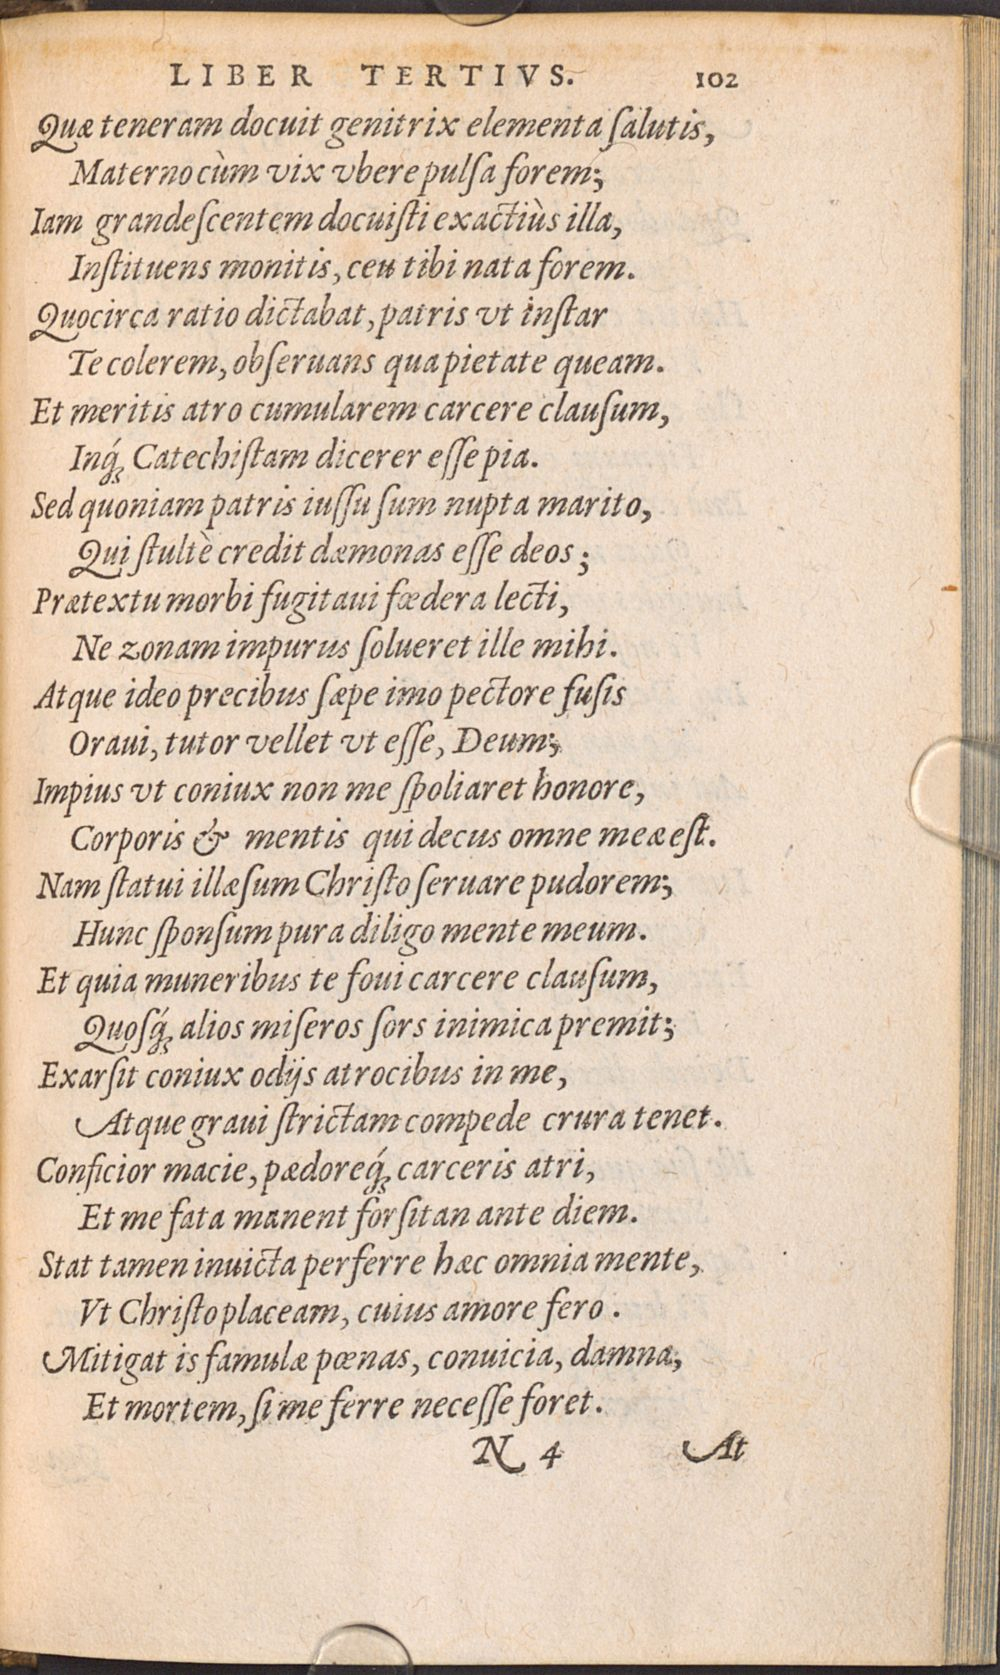 LIBER TERTIVS. 102
Quæ teneram docuit genitrix elementa ſalutis,
Materno cùm vix vbere pulſa forem;
Iam grandeſcentem docuiſti exactiùs illa,
Inſtituens monitis, ceu tibi nata forem.
Quocirca ratio dictabat, patris vt inſtar
Te colerem, obſeruans qua pietate queam.
Et meritis atro cumularem carcere clauſum,
Inq́ꝫ Catechiſtam dicerer eſſe pia.
Sed quoniam patris iuſſu ſum nupta marito,
Qui ſtultè credit dæmonas eſſe deos;
Prætextu morbi fugitaui fœdera lecti,
Ne zonam impurus ſolueret ille mihi.
Atque ideo precibus ſæpe imo pectore fuſis
Oraui, tutor vellet vt eſſe, Deum;
Impius vt coniux non me ſpoliaret honore,
Corporis & mentis qui decus omne meæ eſt.
Nam ſtatui illæſum Chriſto ſeruare pudorem;
Hunc ſponſum pura diligo mente meum.
Et quia muneribus te foui carcere clauſum,
Quoſq́ꝫ alios miſeros ſors inimica premit;
Exarſit coniux odijs atrocibus in me,
Atque graui ſtrictam compede crura tenet.
Conficior macie, pædoreq́ꝫ carceris atri,
Et me fata manent forſitan ante diem.
Stat tamen inuicta perferre hæc omnia mente,
Vt Chriſto placeam, cuius amore fero.
Mitigat is famulæ pœnas, conuicia, damna,
Et mortem, ſi me ferre neceſſe foret.
N 4 At